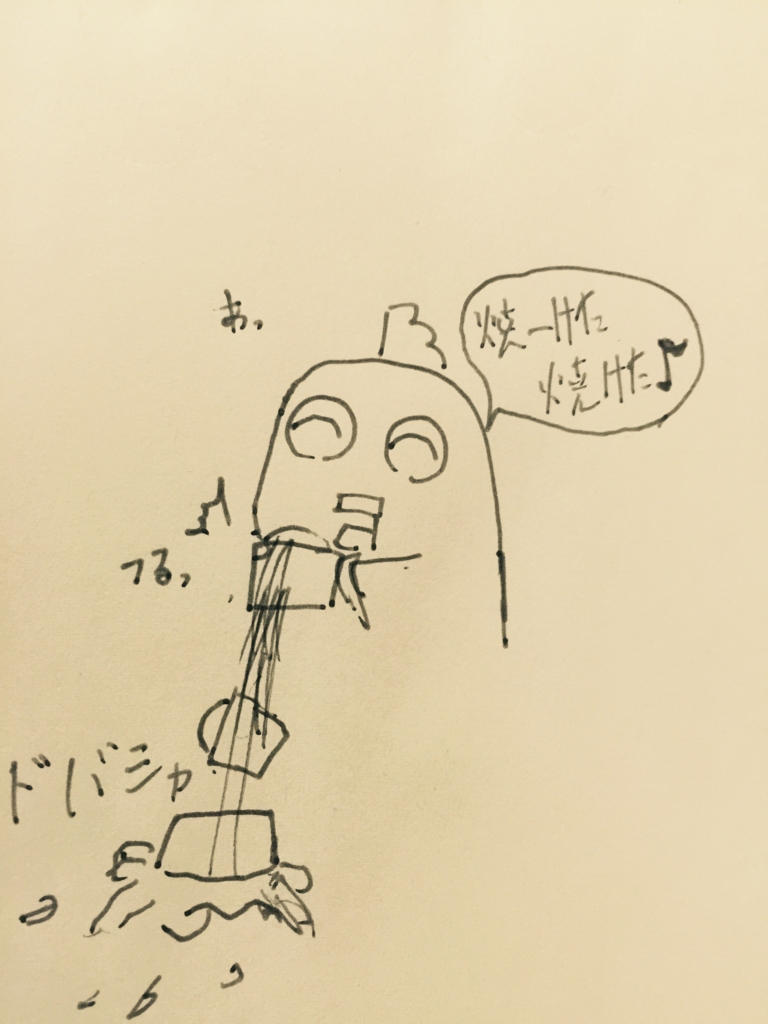 焼ーけた
焼けた♪
あっ
つるっ
ドバシャ